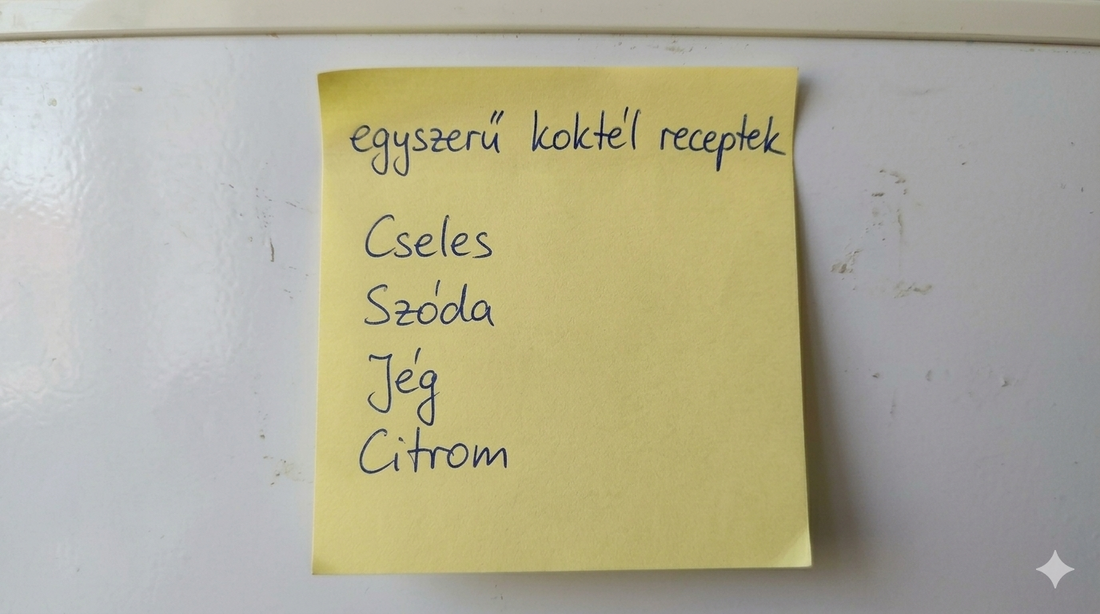 egyszerű koktél receptek
Cseles
Szóda
Jég
Citrom